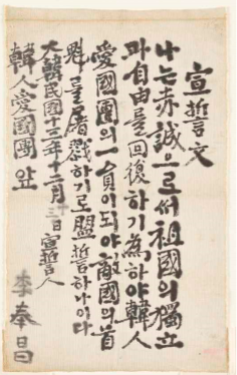 宣誓文
나는赤誠으로써祖國의獨立
과自由를回復하기爲하야韓人
愛國團의一員이되야敵國의首
魁를屠戮하기로盟誓하나이다
大韓民國十三年十二月十三日 宣誓人
李奉昌
韓人愛國團앞